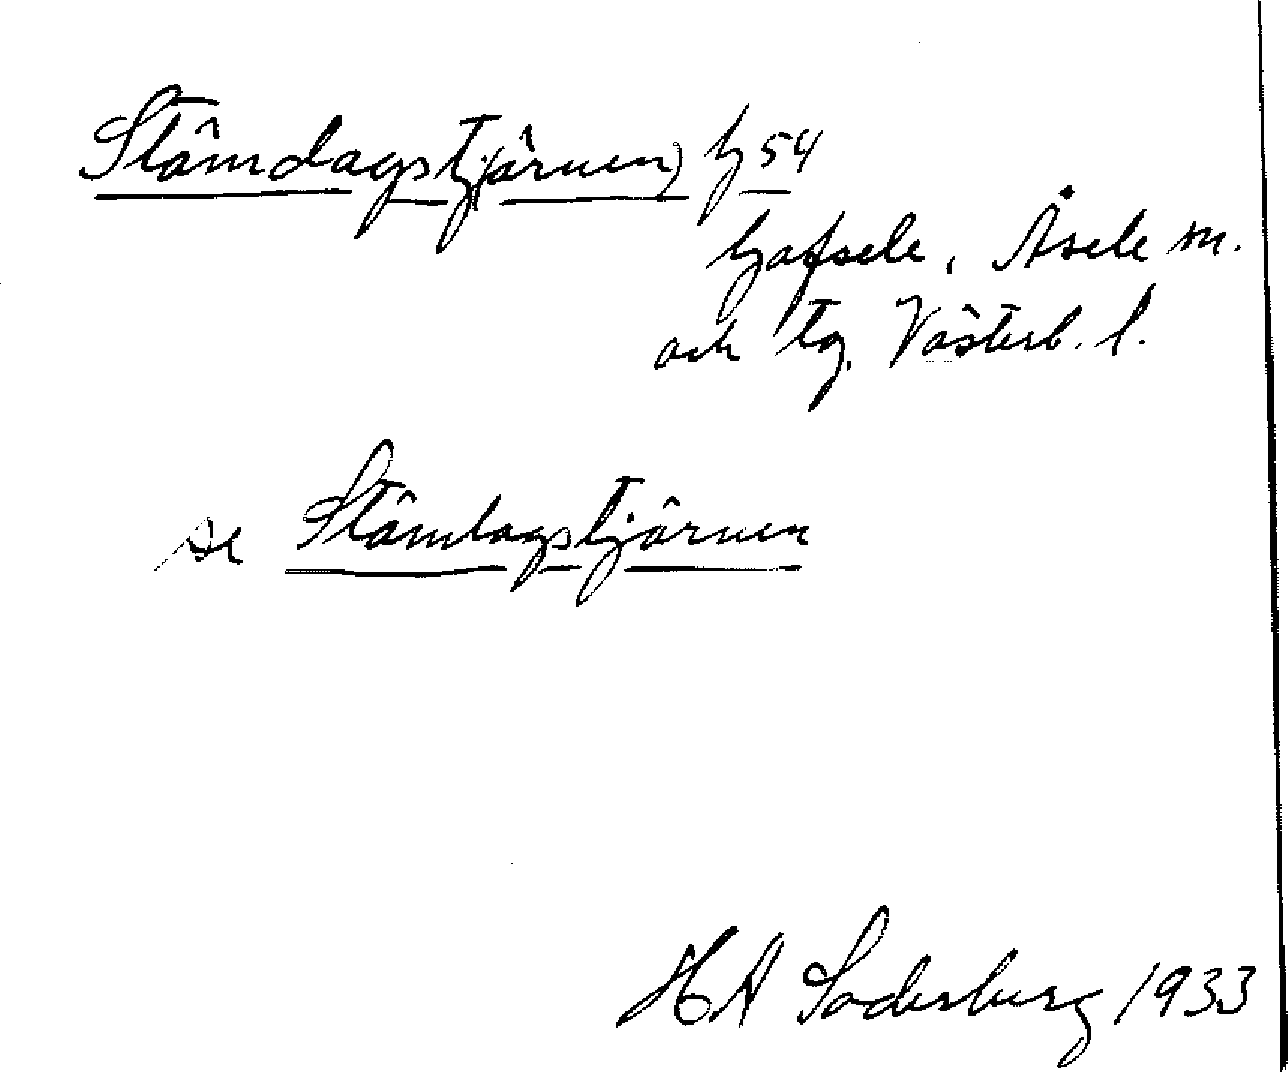 Stämdagstj(ärnen) G 54
Gafsele, Åsele sn.
och tg, Västerb. l.
se Stämtagstjärnen
H A Söderberg 1933